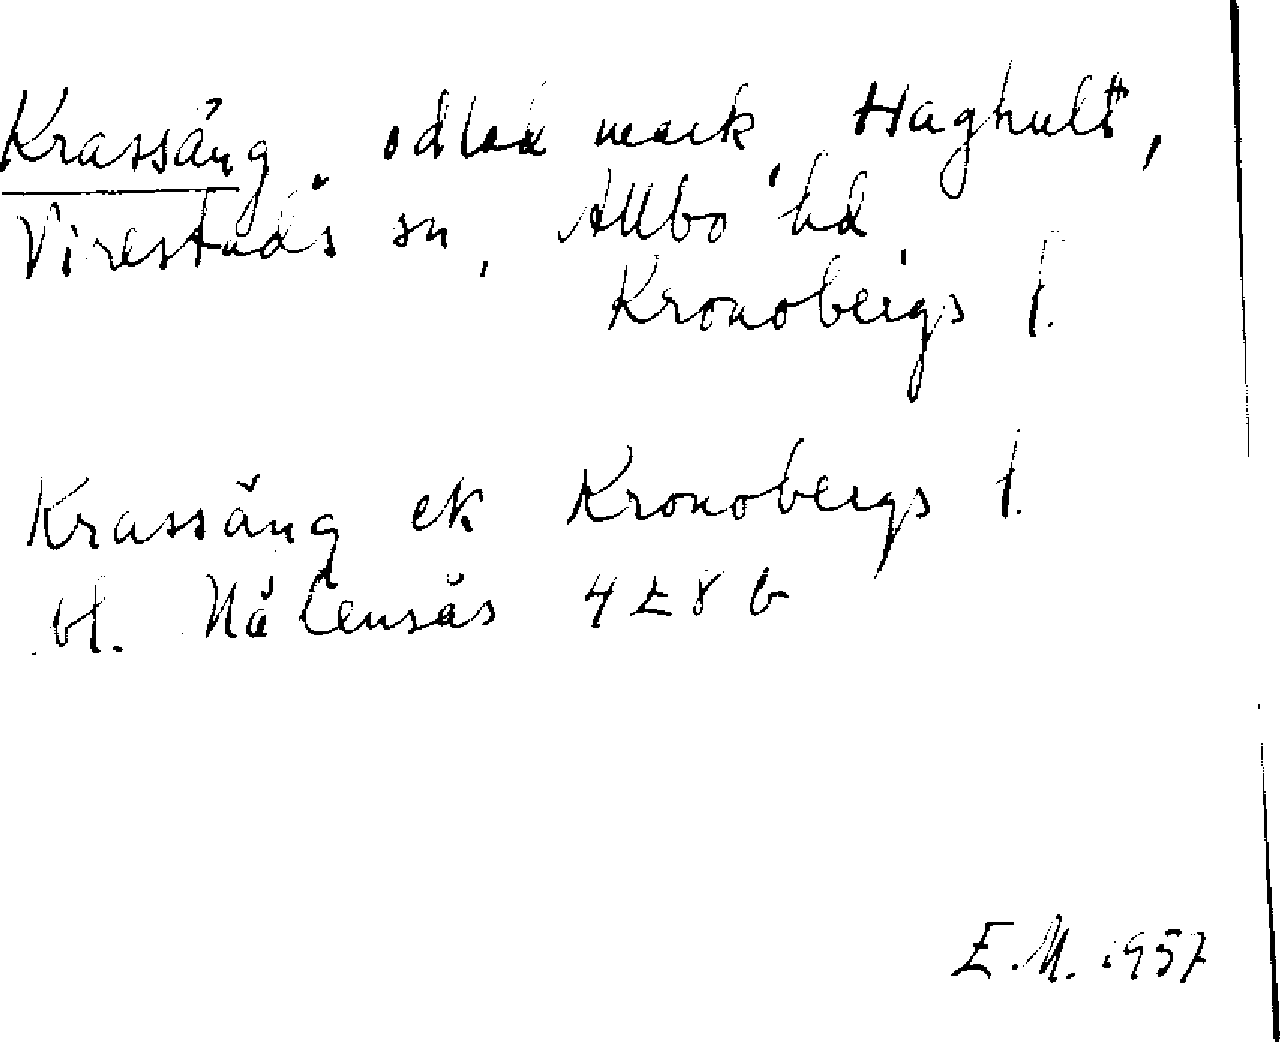 Krassäng, odlad mark, Haghult,
Virestads sn, Allbo hd,
Kronobergs l.
Krassäng ek Kronobergs l.
bl. Nålensås 4 E 8 b
E.M. 1957